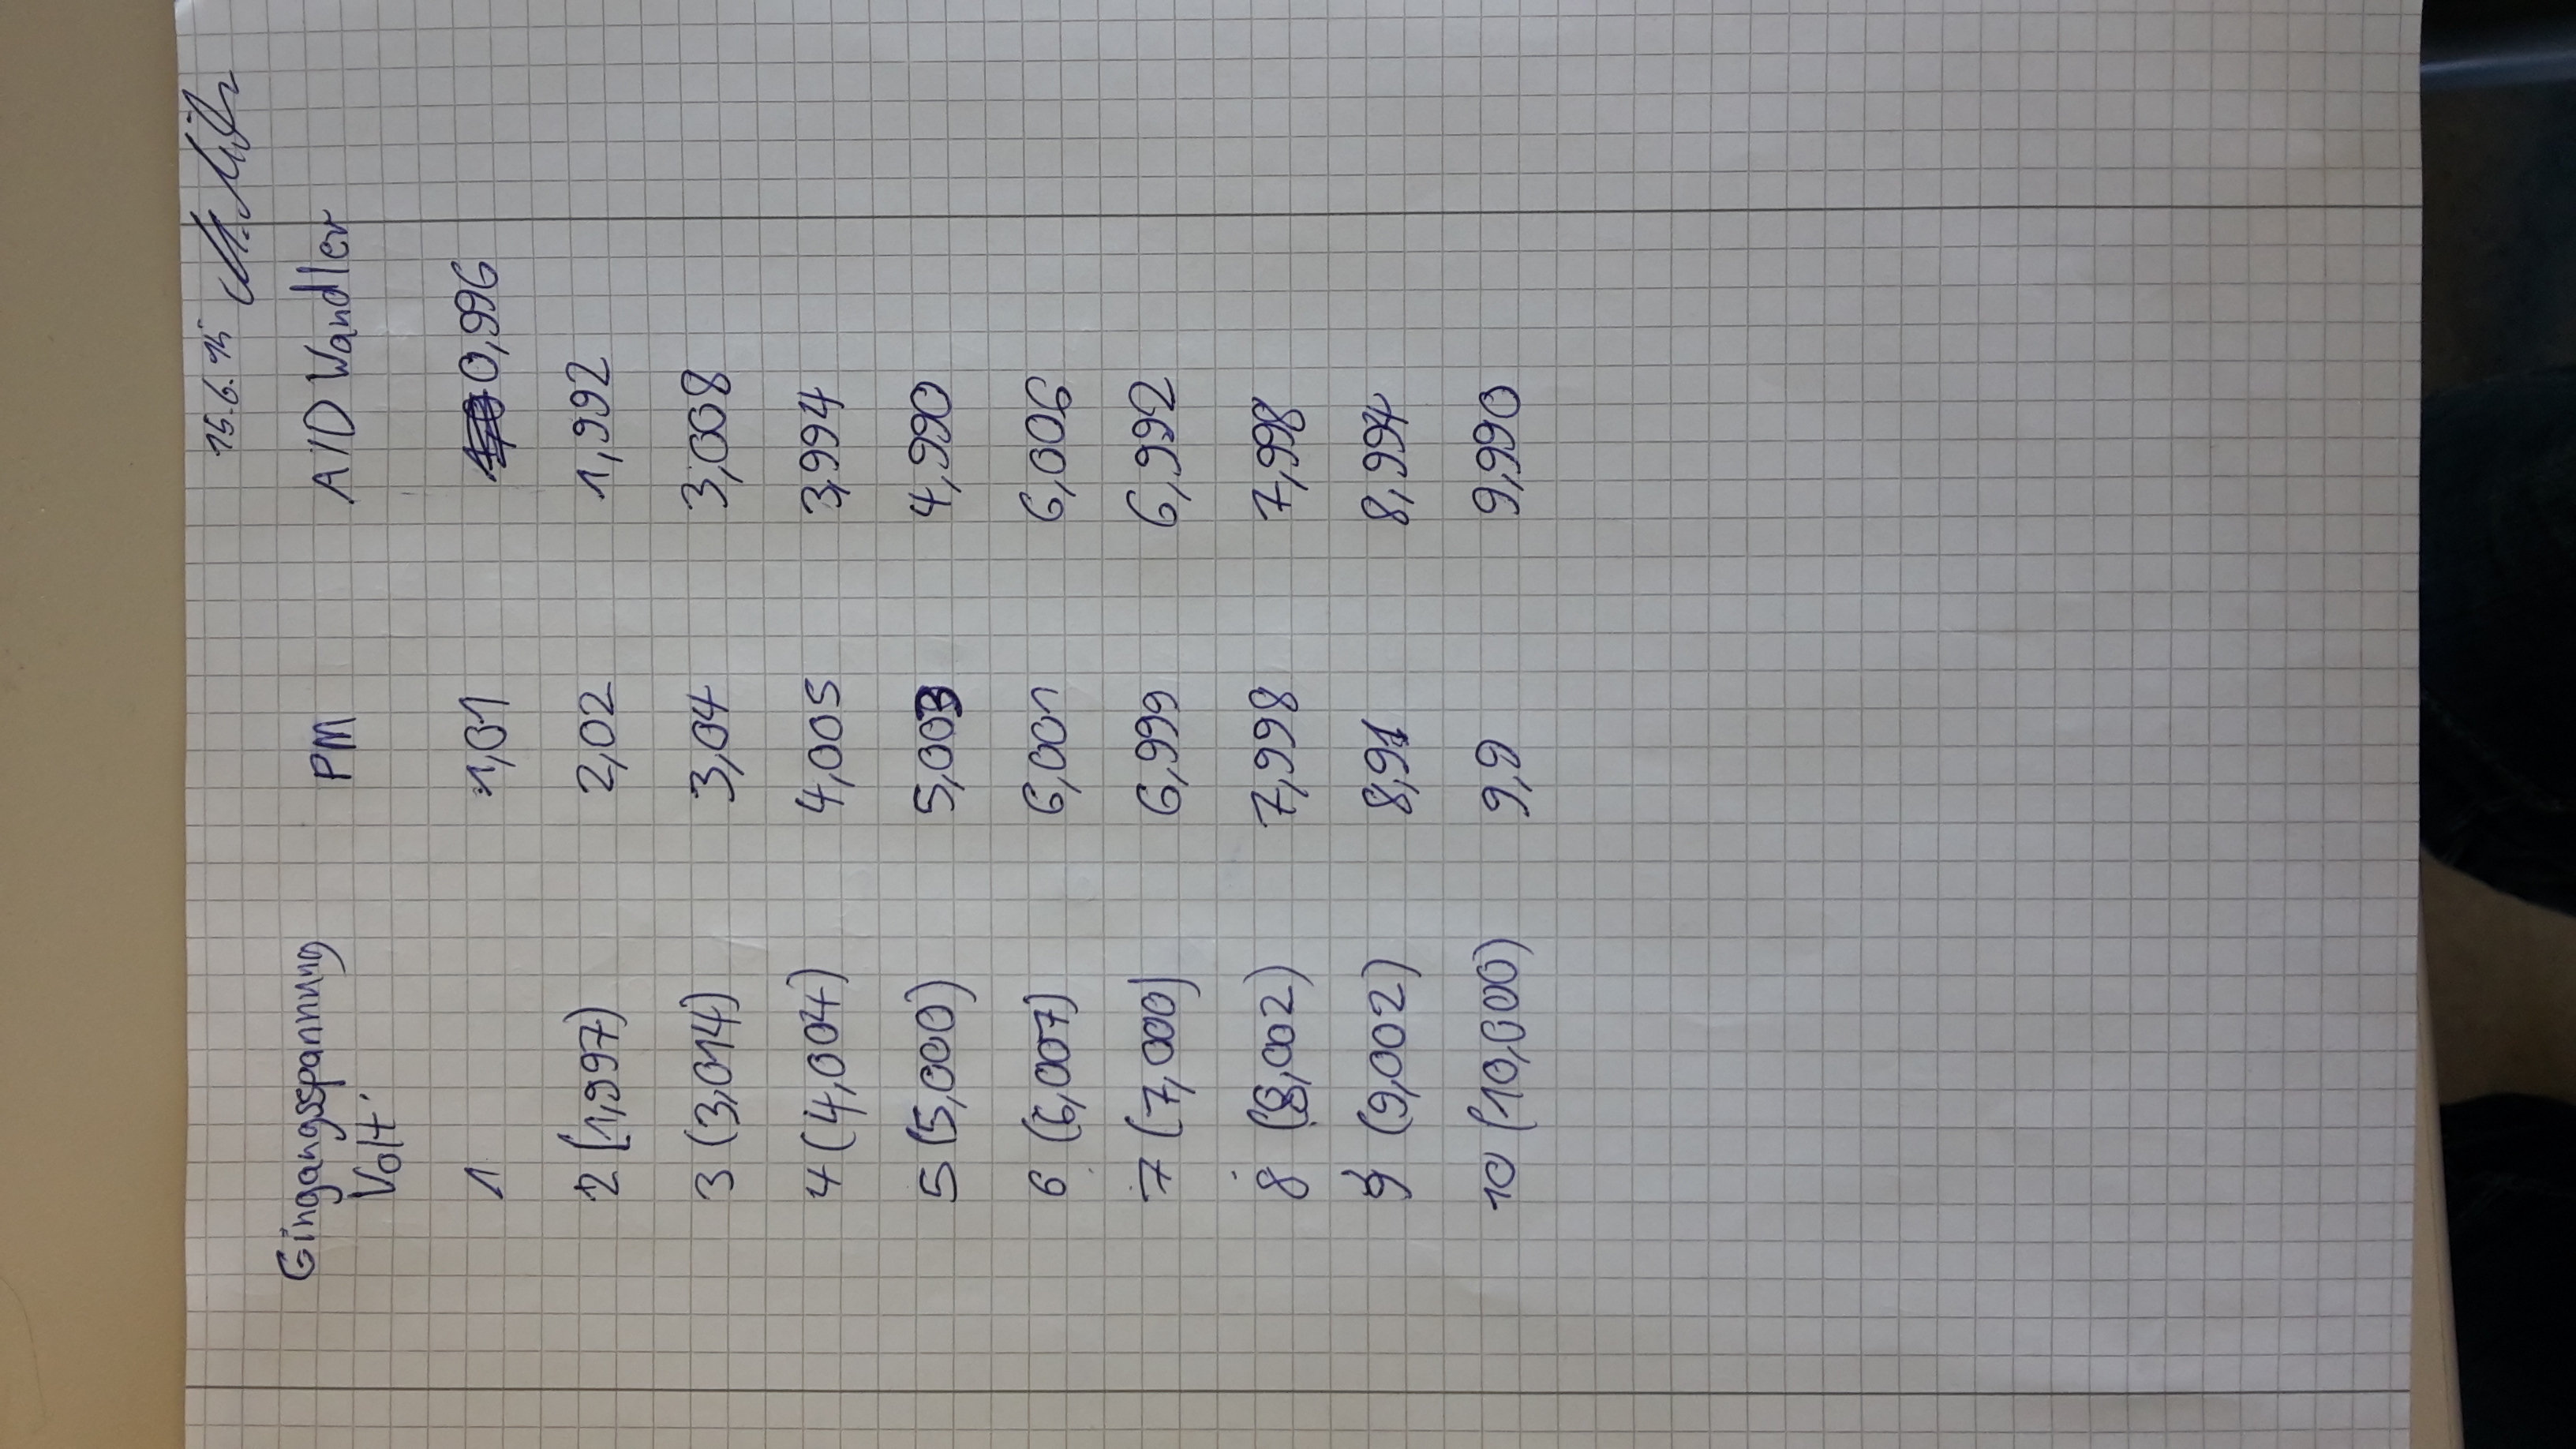 15.6.15
Eingangsspannung PM A/D Wandler
Volt
1 1,01 0,996
2 (1,997) 2,02 1,992
3 (3,014) 3,04 3,008
4 (4,004) 4,005 3,994
5 (5,000) 5,003 4,990
6 (6,007) 6,001 6,006
7 (7,000) 6,999 6,992
8 (8,002) 7,998 7,998
9 (9,002) 8,991 8,994
10 (10,000) 9,9 9,990